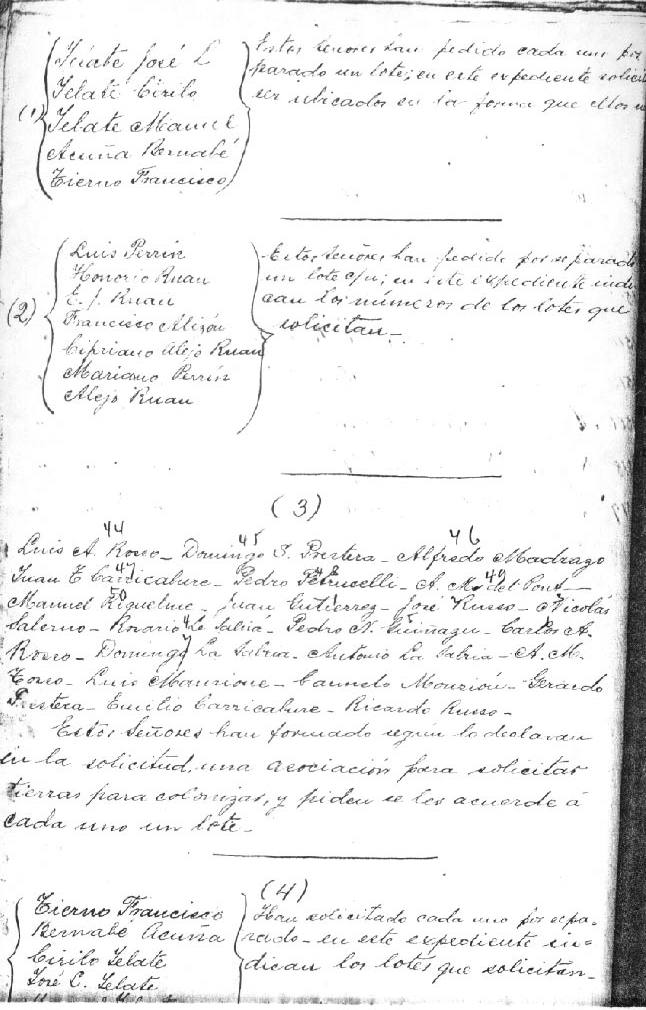 José L
Zelate Cirilo
(1) Zelate Manuel
Acuña Bernabé
Tierno Francisco
Estos señores han pedido cada uno por
parado un lote; en este expediente solicit
ser ubicados en la forma que ellos
(2)
Luis Perrín
Honorio Ruau
E. J. Ruau
Francisco Alizón
Cipriano Alejo Ruau
Mariano Perrín
Alejo Ruau
Estos señores han pedido por separado
un lote c/u; en este expediente indi
can los números de los lotes que
solicitan_
(3)
44 45 46
Luis A. Rosso_ Domingo S. Prestera_ Alfredo Madrago
47 48 49
Juan E Carricabure_ Pedro Petrucelli_ A. M. del Pont_
50
Manuel Riquelme_ Juan Gutierrez_ José Russo_ Nicolás
Salerno_ Rosario La Sabia_ Pedro N. Guiñazu_ Carlos A.
Rosso_ Domingo La Sabia_ Antonio La Sabia_ A. M.
Luis Manzione_ Gerardo
Prestera_ Emilio Carricabure_ Ricardo Russo_
Estos Señores han formado según lo declaran
en la solicitud, una asociación para solicitar
tierras para colonizar, y piden se les acuerde á
cada uno un lote_
(4)
Tierno Francisco
Bernabé Acuña
Cirilo Zelate
José C. Zelate
Han solicitado cada uno por sepa-
rado_ en este expediente in-
dican los lotes que solicitan_